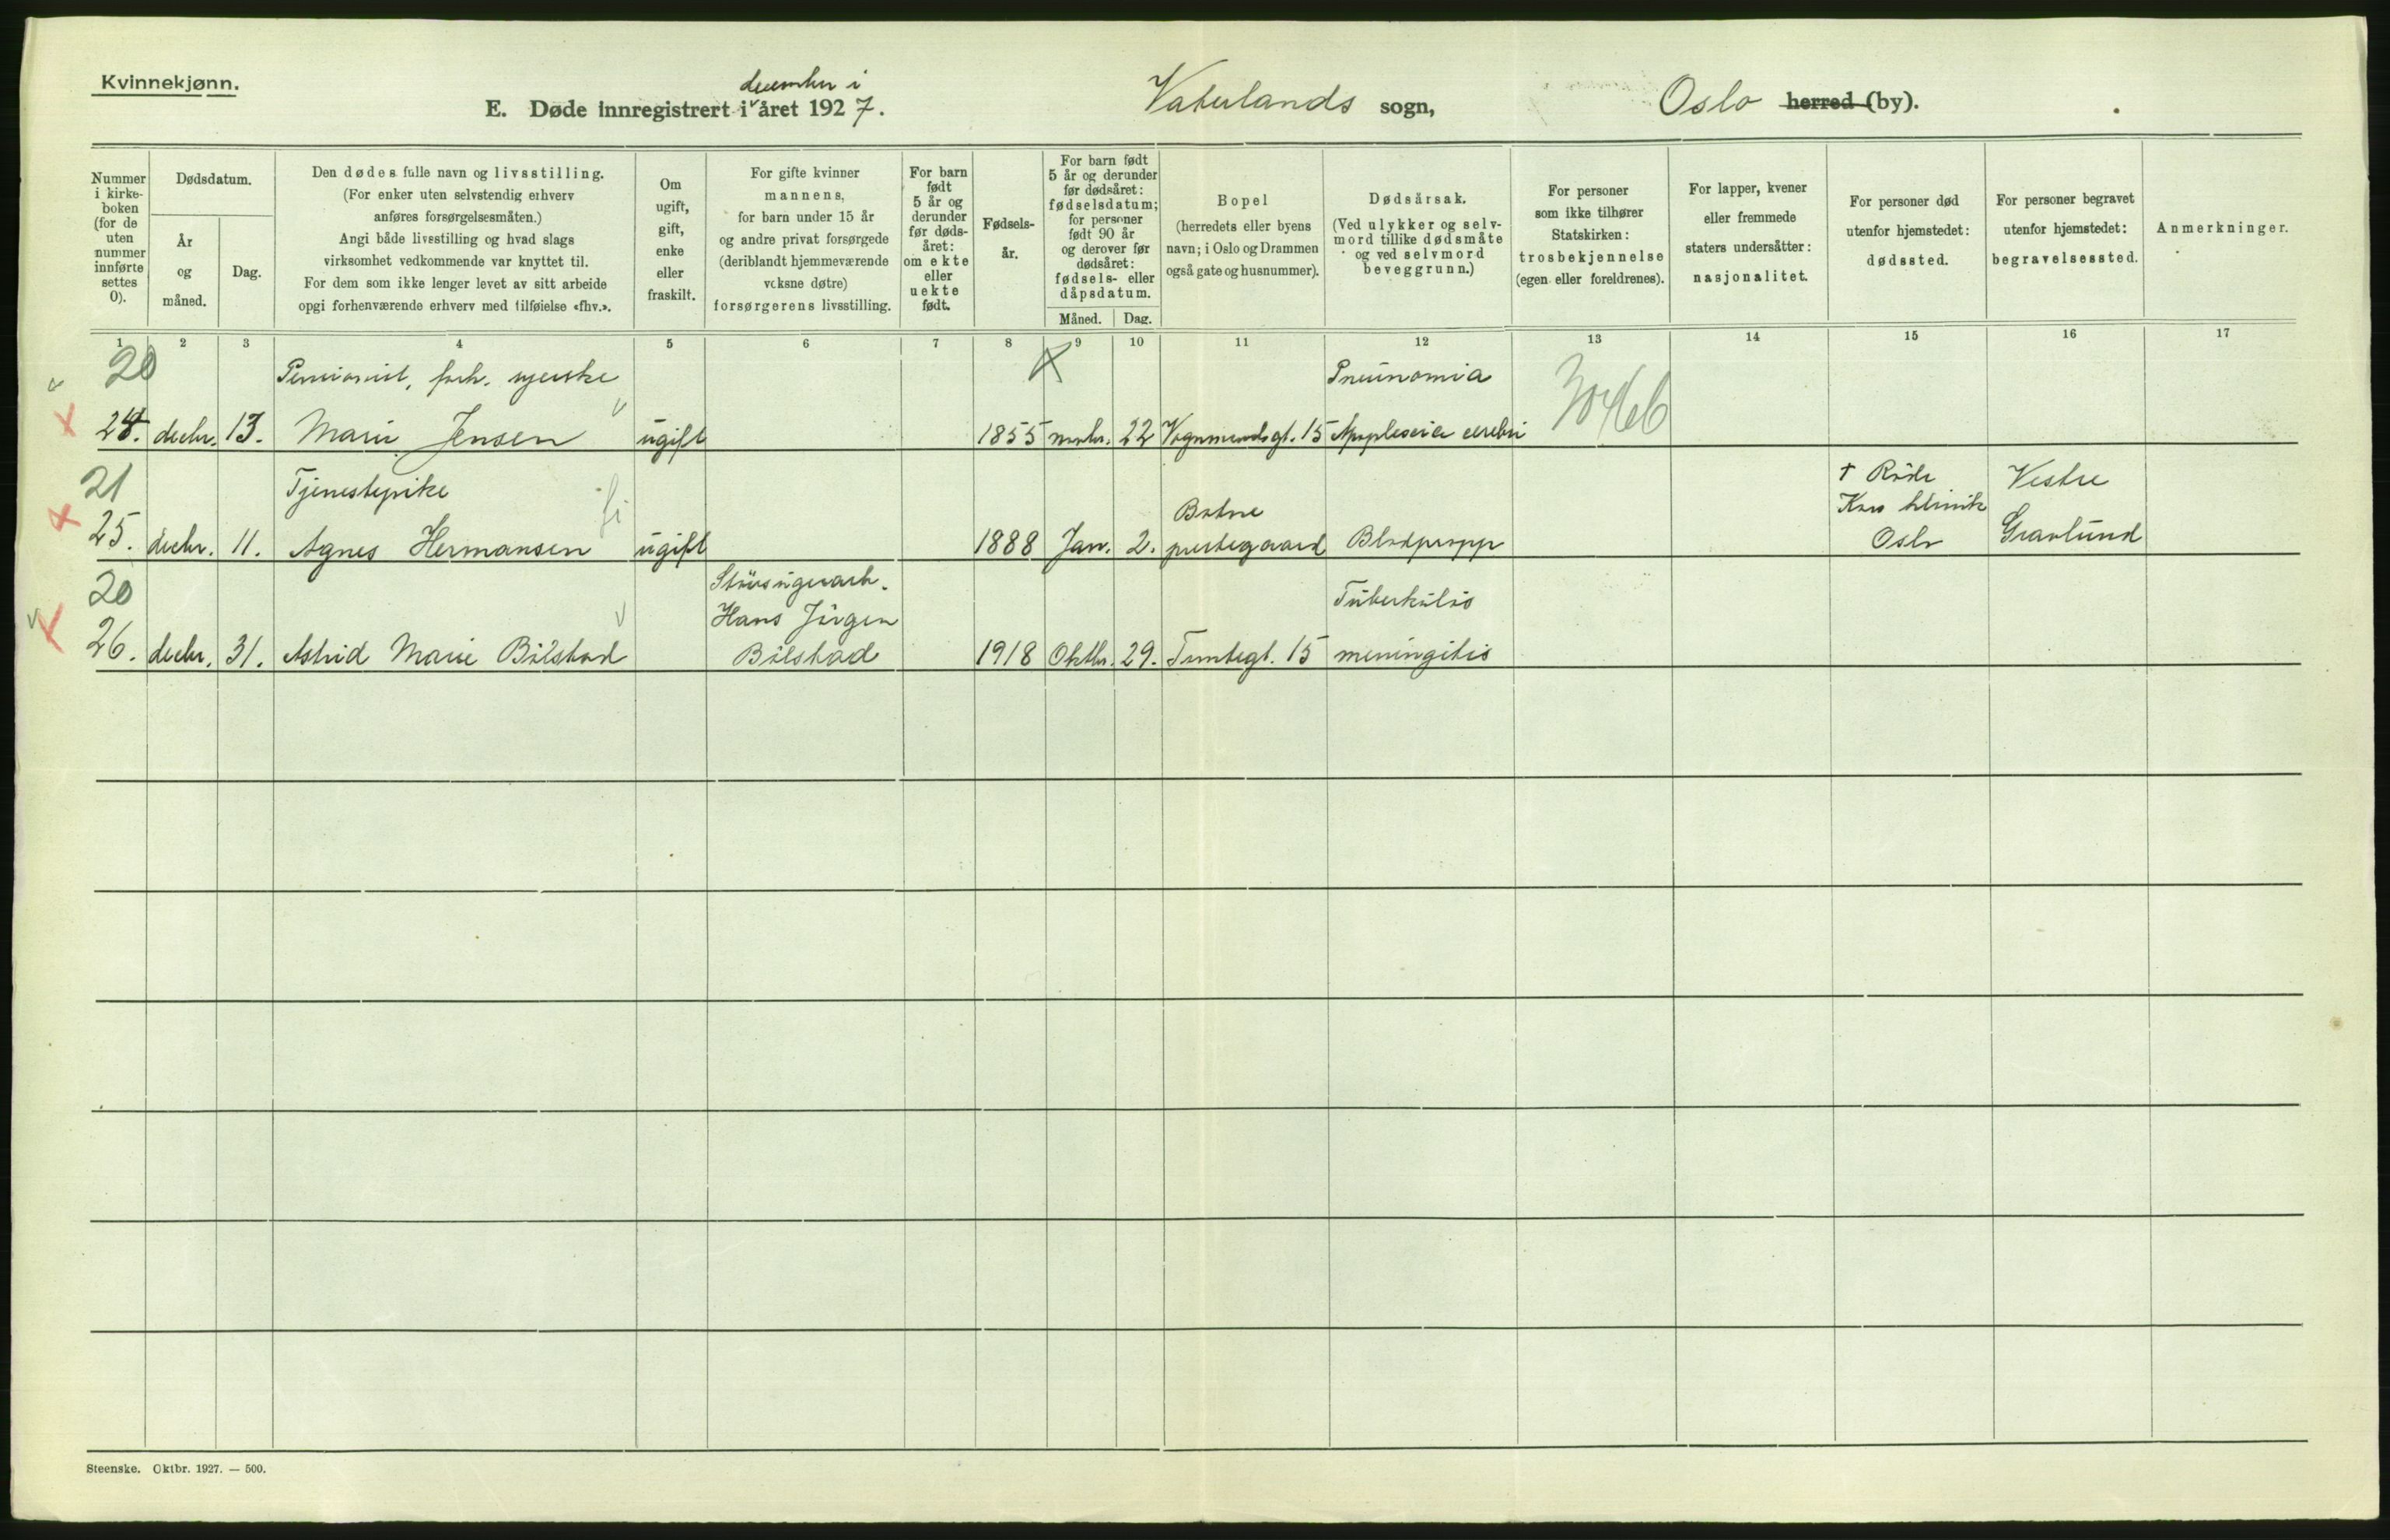 Kvinnekjønn.
december i
E. Døde innregistrert i året 1927.
Vaterlands sogn,
Oslo herred (by).
Nummer i kirke- boken (for de uten nummer innførte settes 0).
Dødsdatum.
År og måned.
Dag.
Den dødes fulle navn og livsstilling.
(For enker uten selvstendig erhverv
anføres forsørgelsesmåten.)
Angi både livsstilling og hvad slags
virksomhet vedkommende var knyttet til.
For dem som ikke lenger levet av sitt arbeide
opgi forhenværende erhverv med tilføielse «fhv.».
Om ugift, gift, enke eller fraskilt.
For gifte kvinner
mannens,
for barn under 15 år
og andre privat forsørgede
(deriblandt hjemmeværende
voksne døtre)
forsørgerens livsstilling.
For barn født 5 år og derunder før døds- året: om ekte eller uekte født.
Fødsels- år.
For barn født
5 år og derunder
før dødsåret:
fødselsdatum;
for personer
født 90 år
og derover før
dødsåret:
fødsels- eller
dåpsdatum.
Måned.
Dag.
Bopel
(herredets eller byens
navn; i Oslo og Drammen
også gate og husnummer).
Dødsårsak.
(Ved ulykker og selv-
mord tillike dødsmåte
og ved selvmord
beveggrunn.)
For personer
som ikke tilhører
Statskirken:
trosbekjennelse
(egen eller foreldrenes).
For lapper, kvener
eller fremmede
staters undersåtter:
nasjonalitet.
For personer død
utenfor hjemstedet:
dødssted.
For personer begravet
utenfor hjemstedet:
begravelsessted.
Anmerkninger.
1 2 3 4 5 6 7 8 9 10 11 12 13 14 15 16 17
20 Pensionist, forh. syerske Pneunomia
24. decbr. 13. Marie Jensen ugift 1855 novbr. 22 Vognmandsgt. 15 Apoplexia cerebri
21 Tjenestepike † Röde Vestre
Botne Kors klinik
25. decbr. 11. Agnes Hermansen ugift 1888 Jan. 2. prestegaard Blodpropp Oslo Gravlund
20 Störsugerarb. Tuberkuløs
Hans Jörgen
26. decbr. 31. Astrid Marie Bölstad Bölstad 1918 Oktbr. 29. Tomtegt. 15 meningitis
Steenske. Oktbr. 1927. — 500.